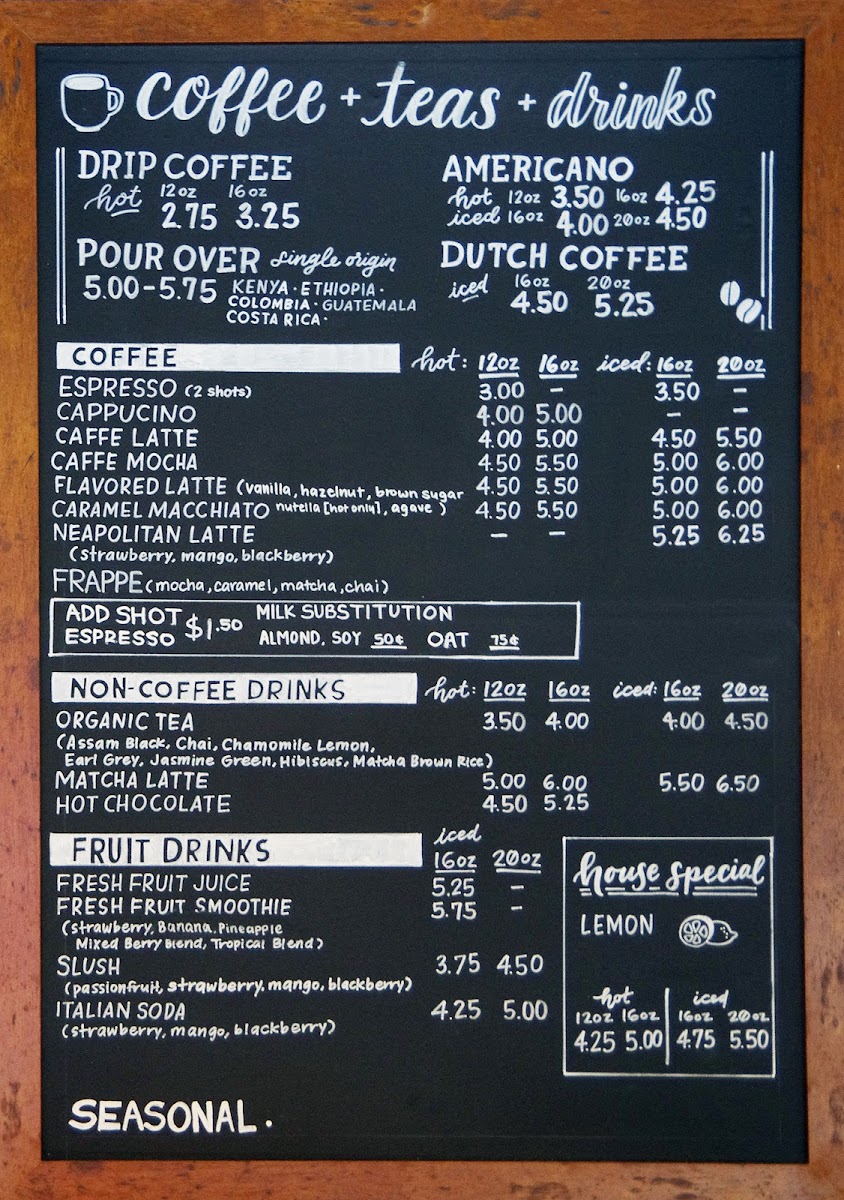 coffee + teas + drinks
DRIP COFFEE
hot 12oz 16oz
2.75 3.25
AMERICANO
hot 12oz 3.50 16oz 4.25
iced 16oz 4.00 20oz 4.50
POUR OVER single origin
5.00-5.75 KENYA · ETHIOPIA ·
COLOMBIA · GUATEMALA
COSTA RICA ·
DUTCH COFFEE
iced 16oz 20oz
4.50 5.25
COFFEE hot: 12oz 16oz iced: 16oz 20oz
ESPRESSO (2 shots) 3.00 – 3.50 –
CAPPUCINO 4.00 5.00 – –
CAFFE LATTE 4.00 5.00 4.50 5.50
CAFFE MOCHA 4.50 5.50 5.00 6.00
FLAVORED LATTE (vanilla, hazelnut, brown sugar 4.50 5.50 5.00 6.00
CARAMEL MACCHIATO nutella [hot only], agave ) 4.50 5.50 5.00 6.00
NEAPOLITAN LATTE – – 5.25 6.25
(strawberry, mango, blackberry)
FRAPPE (mocha, caramel, matcha, chai)
ADD SHOT ESPRESSO $1.50
MILK SUBSTITUTION
ALMOND, SOY 50¢ OAT 75¢
NON-COFFEE DRINKS hot: 12oz 16oz iced: 16oz 20oz
ORGANIC TEA 3.50 4.00 4.00 4.50
(Assam Black, Chai, Chamomile Lemon,
Earl Grey, Jasmine Green, Hibiscus, Matcha Brown Rice)
MATCHA LATTE 5.00 6.00 5.50 6.50
HOT CHOCOLATE 4.50 5.25
FRUIT DRINKS iced
16oz 20oz
FRESH FRUIT JUICE 5.25 –
FRESH FRUIT SMOOTHIE 5.75 –
(strawberry, Banana, Pineapple
Mixed Berry Blend, Tropical Blend)
SLUSH 3.75 4.50
(passionfruit, strawberry, mango, blackberry)
ITALIAN SODA 4.25 5.00
(strawberry, mango, blackberry)
house special
LEMON
hot iced
12oz 16oz 16oz 20oz
4.25 5.00 4.75 5.50
SEASONAL.